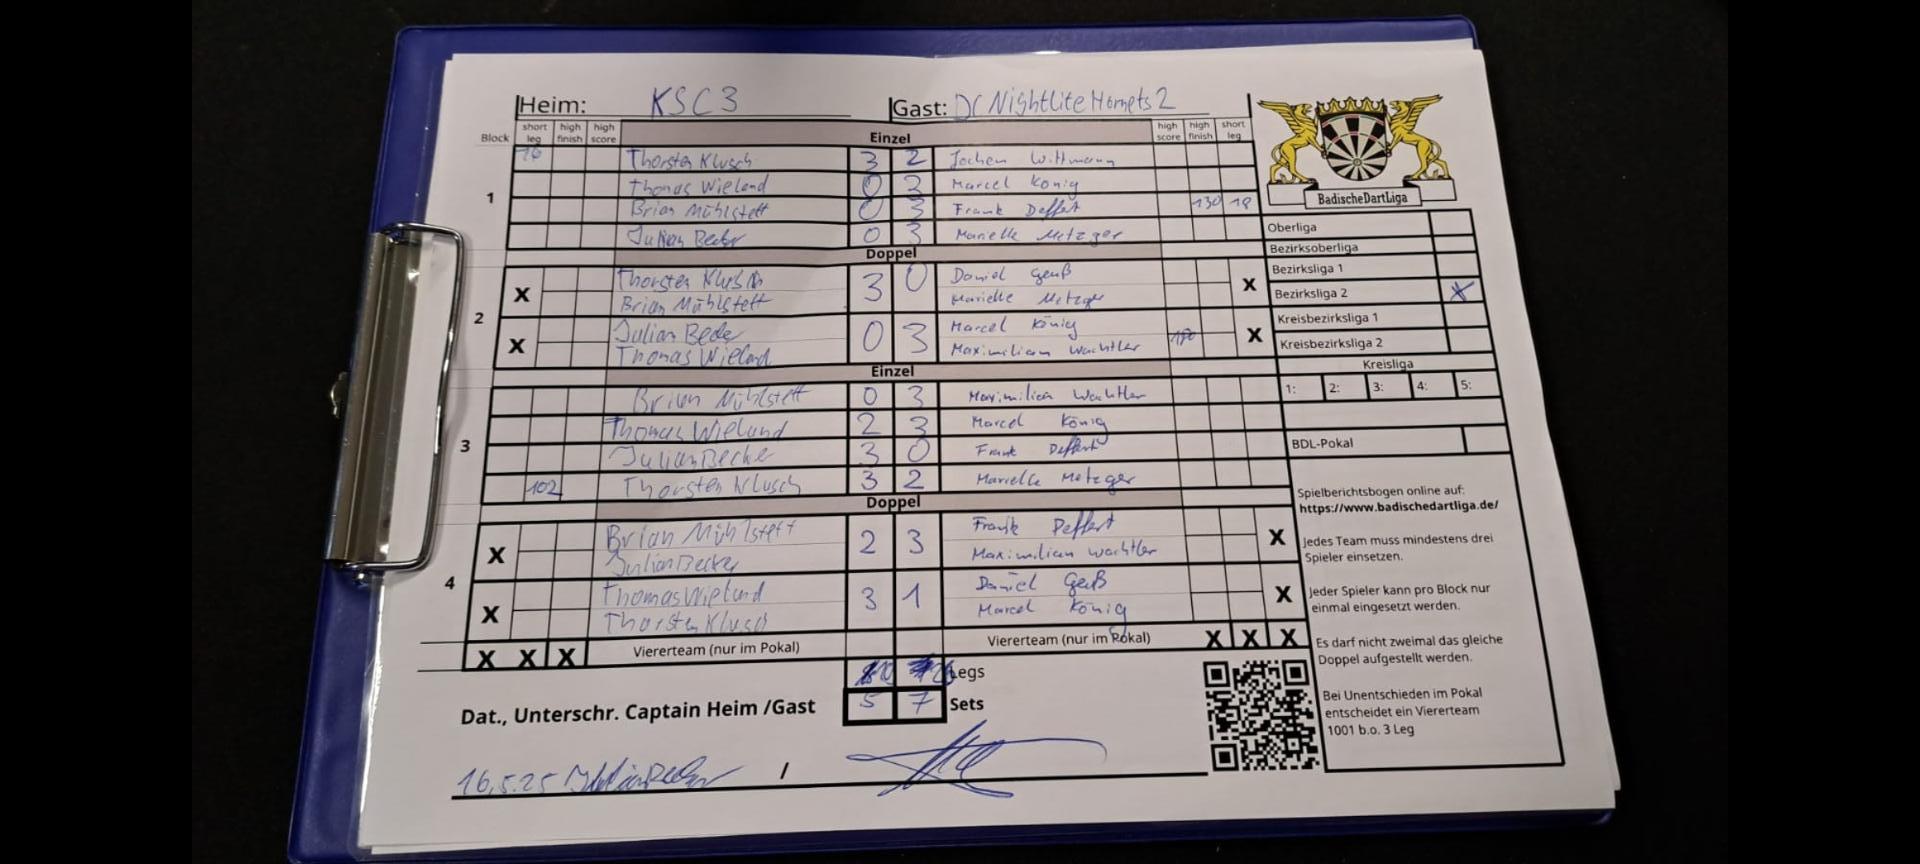 Heim: KSC 3 Gast: DC Nightlite Hornets 2
Block short leg high finish high score Einzel high score high finish short leg
1
16 Thorsten Klusch 3 2 Jochen Wittmann
Thomas Wieland 0 3 Marcel König
Brian Mühlstett 0 3 Frank Deffert 130 18
Julian Becker 0 3 Marielle Metzger
Doppel
2
X Thorsten Klusch 3 0 Daniel Geuß X
Brian Mühlstett Marielle Metzger
X Julian Becker 0 3 Marcel König X
Thomas Wieland Maximilian Wachtler 180
Einzel
3
Brian Mühlstett 0 3 Maximilian Wachtler
Thomas Wieland 2 3 Marcel König
Julian Becke 3 0 Frank Deffert
102 Thorsten Klusch 3 2 Marielle Metzger
Doppel
4
X Brian Mühlstett 2 3 Frank Deffert X
Julian Becker Maximilian Wachtler
X Thomas Wieland 3 1 Daniel Geuß X
Thorsten Klusch Marcel König
X X X Viererteam (nur im Pokal) Viererteam (nur im Pokal) X X X
Legs
5 7 Sets
Dat., Unterschr. Captain Heim /Gast
16.5.25 Julian Becker /
BadischeDartLiga
Oberliga
Bezirksoberliga
Bezirksliga 1
Bezirksliga 2 X
Kreisbezirksliga 1
Kreisbezirksliga 2
Kreisliga
1: 2: 3: 4: 5:
BDL-Pokal
Spielberichtsbogen online auf:
https://www.badischedartliga.de/
Jedes Team muss mindestens drei
Spieler einsetzen.
Jeder Spieler kann pro Block nur
einmal eingesetzt werden.
Es darf nicht zweimal das gleiche
Doppel aufgestellt werden.
Bei Unentschieden im Pokal
entscheidet ein Viererteam
1001 b.o. 3 Leg